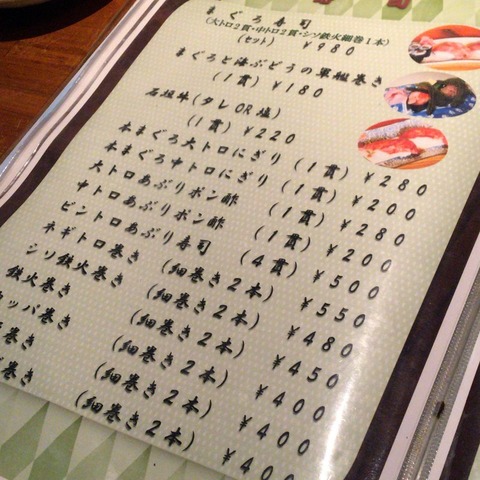 まぐろ寿司
(大トロ2貫・中トロ2貫・シソ鉄火細巻1本)
(セット) ¥980
まぐろと海ぶどうの軍艦巻き
(1貫) ¥180
石垣牛(タレOR塩)
(1貫) ¥220
本まぐろ大トロにぎり (1貫) ¥280
本まぐろ中トロにぎり (1貫) ¥200
大トロあぶりポン酢 (1貫) ¥280
中トロあぶりポン酢 (1貫) ¥200
ビントロあぶり寿司 (4貫) ¥500
ネギトロ巻き (細巻き2本) ¥550
シソ鉄火巻き (細巻き2本) ¥480
鉄火巻き (細巻き2本) ¥450
カッパ巻き (細巻き2本) ¥400
巻き (細巻き2本) ¥400
巻き (細巻き2本) ¥400